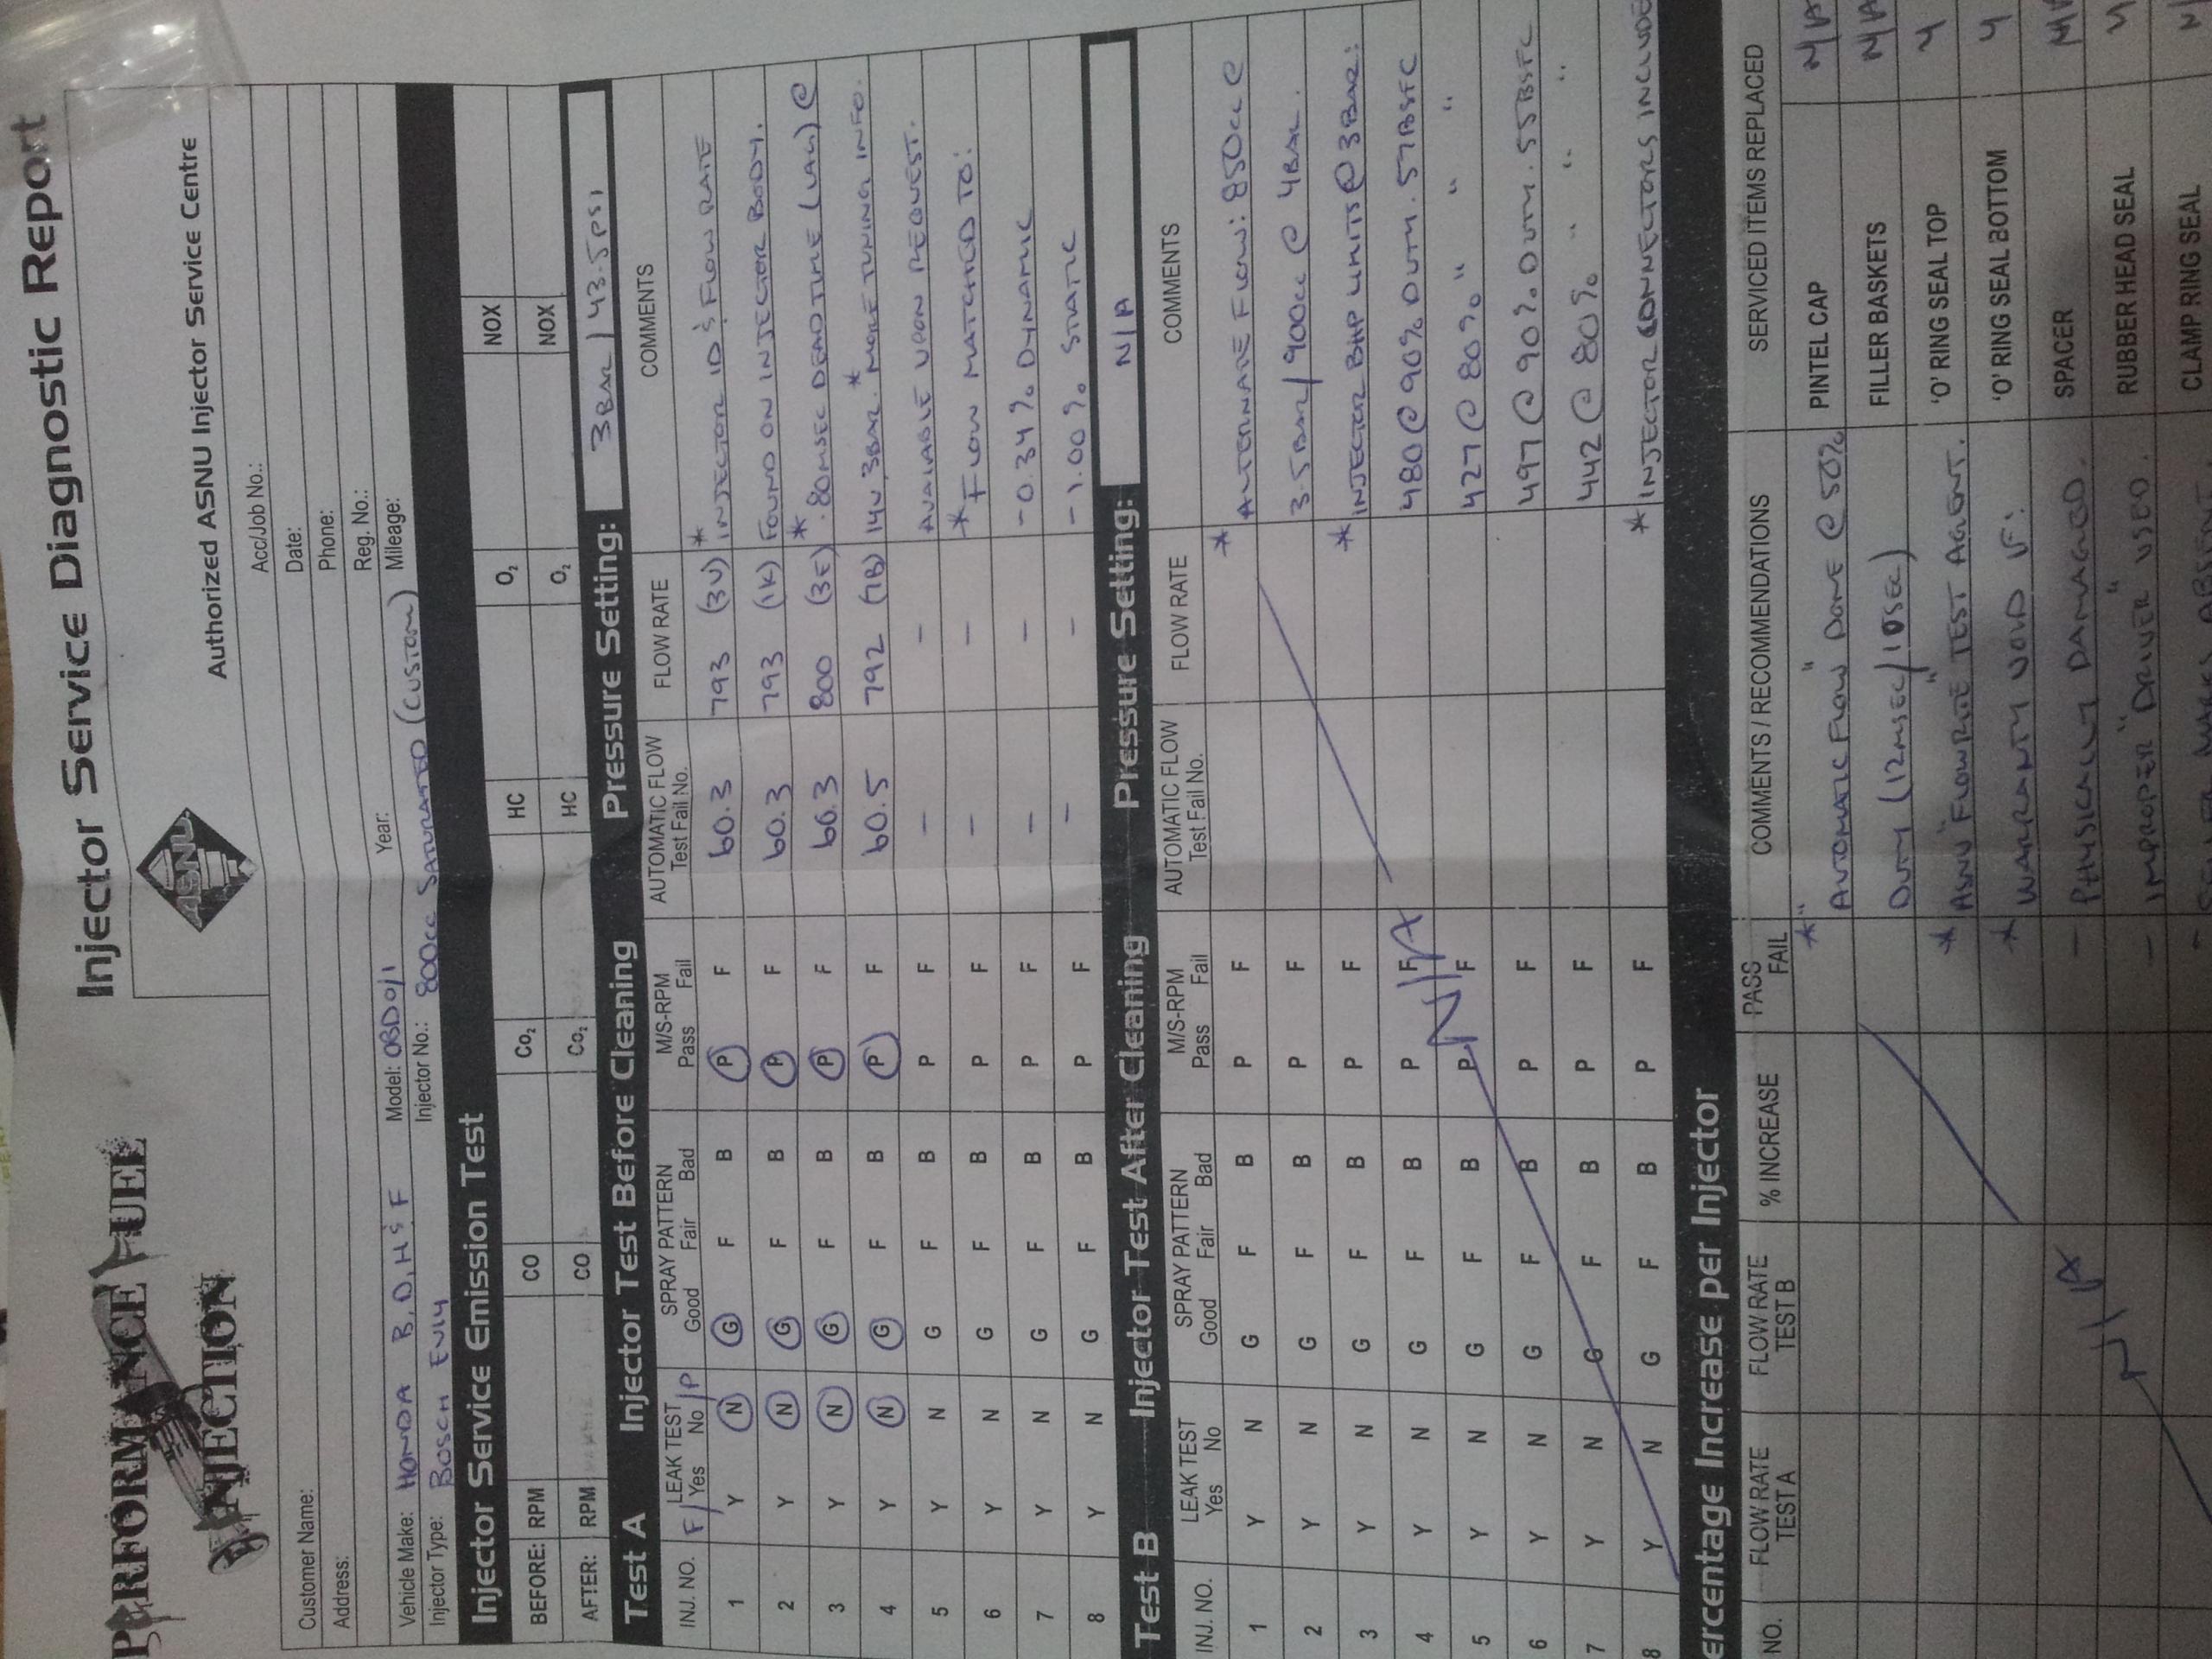 PERFORMANCE FUEL INJECTION
Injector Service Diagnostic Report
ASNU
Authorized ASNU Injector Service Centre
Customer Name:
Acc/Job No.:
Address:
Date:
Phone:
Reg. No.:
Vehicle Make: HONDA B,D,H & F Model: OBD0/1 Year: Mileage:
Injector Type: BOSCH EV14 Injector No.: 800cc SATURATED (CUSTOM)
Injector Service Emission Test
BEFORE: RPM CO Co2 HC O2 NOX
AFTER: RPM CO Co2 HC O2 NOX
Test A Injector Test Before Cleaning Pressure Setting: 3BAR / 43.5PSI
INJ. NO. F/ LEAK TEST /P Yes No SPRAY PATTERN Good Fair Bad M/S-RPM Pass Fail AUTOMATIC FLOW Test Fail No. FLOW RATE COMMENTS
1 Y N G F B P F 60.3 793 (3V) * INJECTOR ID & FLOW RATE
2 Y N G F B P F 60.3 793 (1K) FOUND ON INJECTOR BODY.
3 Y N G F B P F 60.3 800 (3E) * .80MSEC DEADTIME (LAG) @
4 Y N G F B P F 60.5 792 (1B) 14V, 3BAR. * MORE TUNING INFO.
5 Y N G F B P F - - AVAILABLE UPON REQUEST.
6 Y N G F B P F - - * FLOW MATCHED TO:
7 Y N G F B P F - - -0.34% DYNAMIC
8 Y N G F B P F - - -1.00% STATIC
Test B Injector Test After Cleaning Pressure Setting: N/A
INJ. NO. LEAK TEST Yes No SPRAY PATTERN Good Fair Bad M/S-RPM Pass Fail AUTOMATIC FLOW Test Fail No. FLOW RATE COMMENTS
1 Y N G F B P F * ALTERNATE FLOW: 850cc @
2 Y N G F B P F 3.5BAR/900cc @ 4BAR.
3 Y N G F B P F * INJECTOR BHP LIMITS @ 3BAR:
4 Y N G F B P F N/A 480 @ 90% DUTY. .57BSFC
5 Y N G F B P F 427 @ 80% " " "
6 Y N G F B P F 497 @ 90% DUTY. .55BSFC
7 Y N G F B P F 442 @ 80% " " "
8 Y N G F B P F * INJECTOR CONNECTORS INCLUDE
ercentage Increase per Injector
NO. FLOW RATE TEST A FLOW RATE TEST B % INCREASE PASS FAIL COMMENTS / RECOMMENDATIONS SERVICED ITEMS REPLACED
* "AUTOMATIC FLOW" DONE @ 50% PINTEL CAP N/A
DUTY (12MSEC/10SEC) FILLER BASKETS N/A
* ASNU "FLOWRITE" TEST AGENT. 'O' RING SEAL TOP 4
* WARRANTY VOID IF: 'O' RING SEAL BOTTOM 4
N/A - PHYSICALLY DAMAGED. SPACER N/A
- IMPROPER "DRIVER" USED. RUBBER HEAD SEAL 4
CLAMP RING SEAL